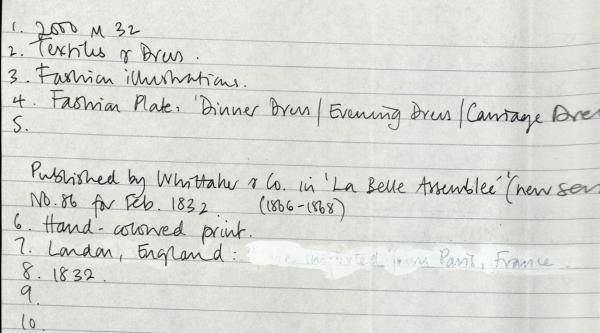 1. 2000 M 32
2. Textiles & Dress.
3. Fashion illustrations.
4. Fashion Plate, 'Dinner Dress / Evening Dress / Carriage Dre
5.
Published by Whittaker & Co. in 'La Belle Assemblée' (new ser
No. 86 for Feb. 1832. (1806-1868)
6. Hand-coloured print.
7. London, England: imported from Paris, France.
8. 1832.
9.
10.